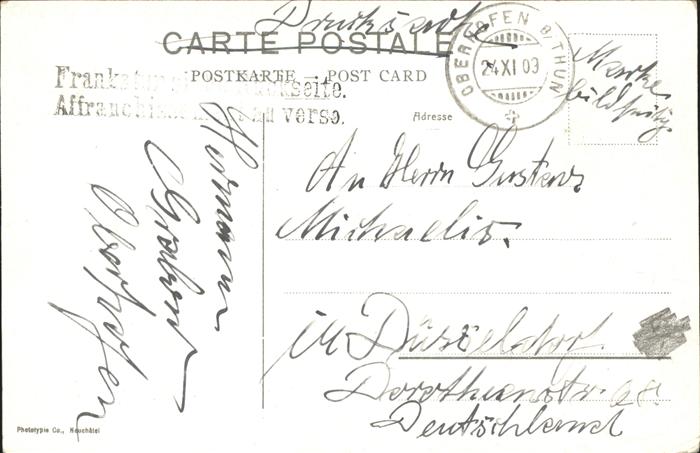 Drucksache
CARTE POSTALE
POSTKARTE – POST CARD
Frankatur Rückseite.
Affranchissement au verso.
OBERHOFEN B/THUN
24 XI 09
Marke
bildseitig
Adresse
An Herrn Gustav
Michaelis.
in Düsseldorf.
Dorotheenstr. 68.
Deutschland
Hermann
Oberhofen
Phototypie Co., Neuchâtel